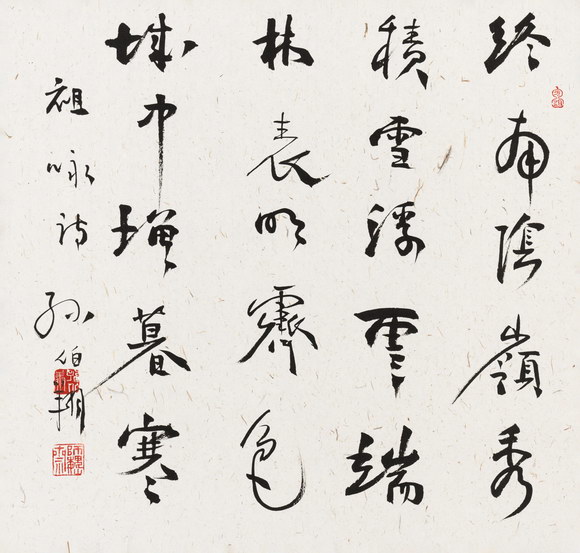 終南陰嶺秀
積雪浮雲端
林表明霽色
城中增暮寒
祖咏诗 孙伯翔